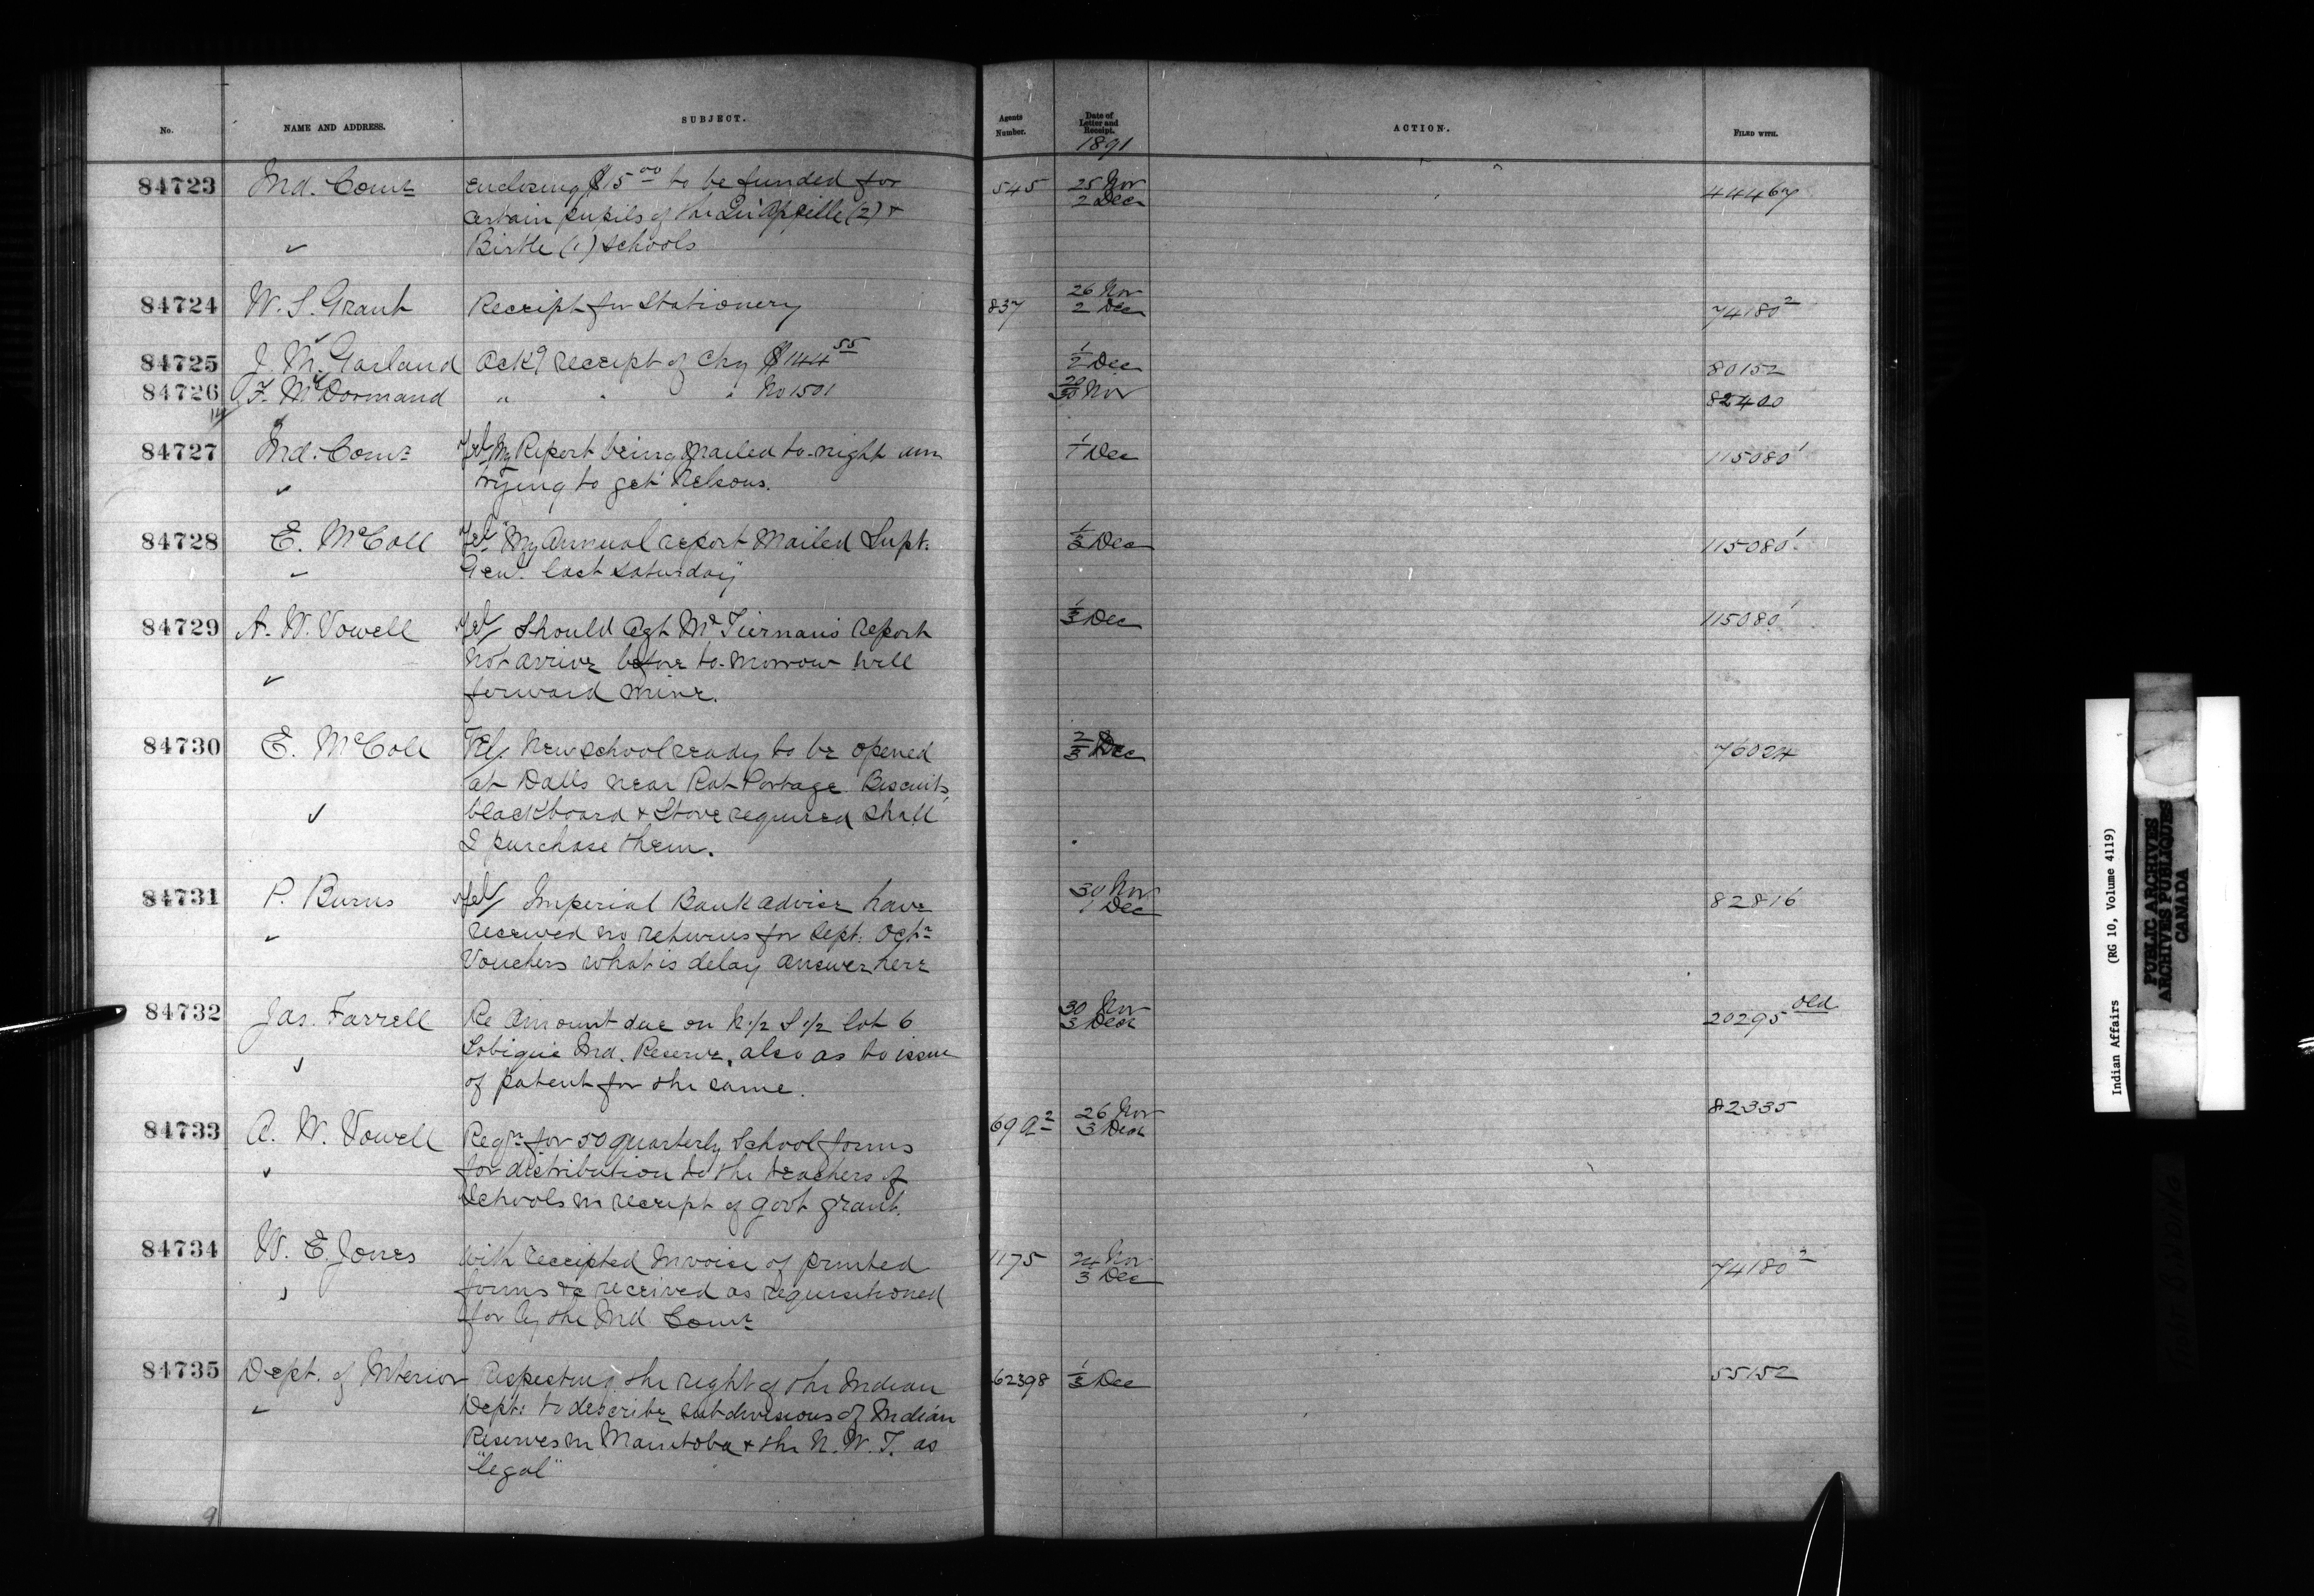 No. NAME AND ADDRESS. SUBJECT. Agents Number. Date of Letter and Receipt. 1891 ACTION. FILED WITH.
84723 Ind. Comr enclosing $15.00 to be funded for 545 25 Nov 2 Dec 44467
certain pupils of the Qu'Appelle (2) &
Birtle (1) schools
84724 W. S. Grant Receipt for Stationery 837 26 Nov 2 Dec 74180 2
84725 J. M. Garland Ackg receipt of Chq $144 55 1/2 Dec 80152
84726 F. McDormand " " " No 1501 20/30 Nov 82400
84727 Ind. Comr Tel/ My Report being mailed to-night am 1/1 Dec 115080 1
trying to get Nelsons.
84728 E. McColl Tel/ "My Annual report mailed Supt. 1/3 Dec 115080 1
Gen'l last Saturday"
84729 A. W. Vowell Tel/ Should Agt McTiernan's report 1/3 Dec 115080 1
not arrive before to-morrow will
forward mine.
84730 E. McColl Tel/ New school ready to be opened 2/3 Dec 76024
at Dalls near Rat Portage. Biscuits,
blackboard & Stove required shall
I purchase them.
84731 P. Burns Tel/ Imperial Bank advise have 30 Nov 1 Dec 82816
received no returns for Sept. Octr
Vouchers what is delay answer here
84732 Jas. Farrell Re Amount due on N 1/2 S 1/2 lot 6 30 Nov 3 Dec 20295 old
Tobique Ind. Reserve, also as to issue
of patent for the same.
84733 A. W. Vowell Reqn for 50 quarterly School forms 69 A 2 26 Nov 3 Dec 82335
for distribution to the teachers of
Schools in receipt of Govt grant.
84734 W. E. Jones With receipted Invoice of printed 1175 24 Nov 3 Dec 74180 2
forms &c received as requisitioned
for by the Ind Comr
84735 Dept. of Interior Respecting the right of the Indian 62398 1/3 Dec 55152
Dept. to describe subdivisions of Indian
Reserves in Manitoba & the N. W. T. as
"legal"
9
Indian Affairs (RG 10, Volume 4119)
PUBLIC ARCHIVES
ARCHIVES PUBLIQUES
CANADA